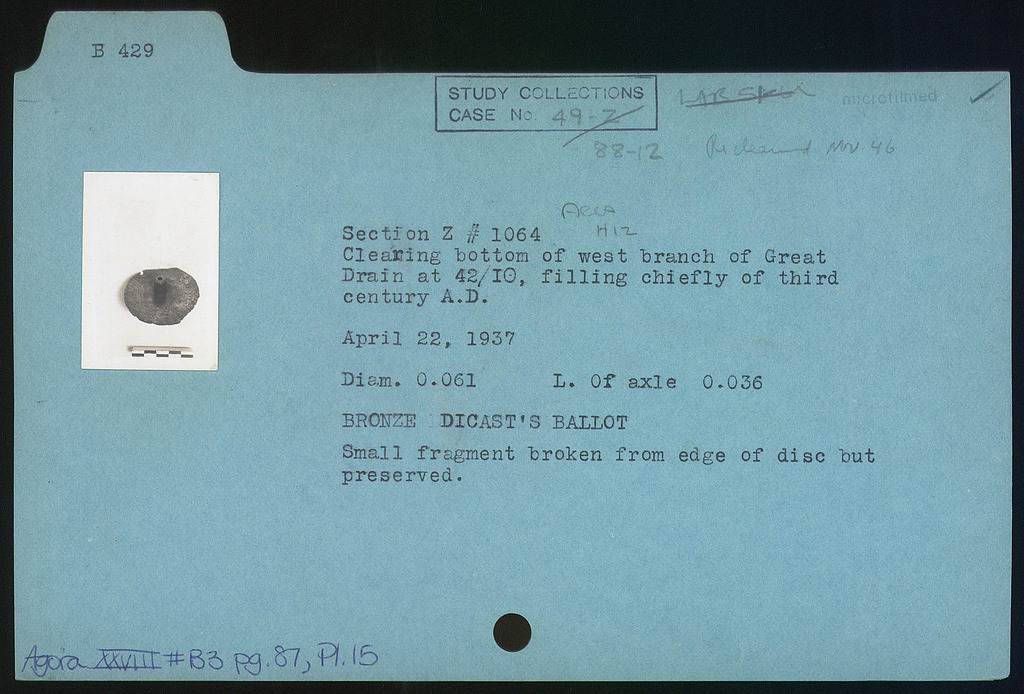 B 429
STUDY COLLECTIONS
CASE No. 49-Z
88-12
microfilmed
Recleaned Nov. 46
Area
H12
Section Z # 1064
Clearing bottom of west branch of Great
Drain at 42/IO, filling chiefly of third
century A.D.
April 22, 1937
Diam. 0.061 L. Of axle 0.036
BRONZE DICAST'S BALLOT
Small fragment broken from edge of disc but
preserved.
Agora XXVIII #B3 pg. 87, Pl. 15